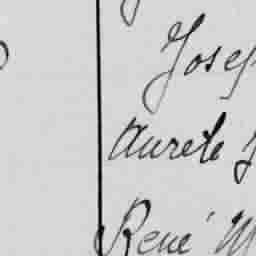 Josep
Aurele J
René M